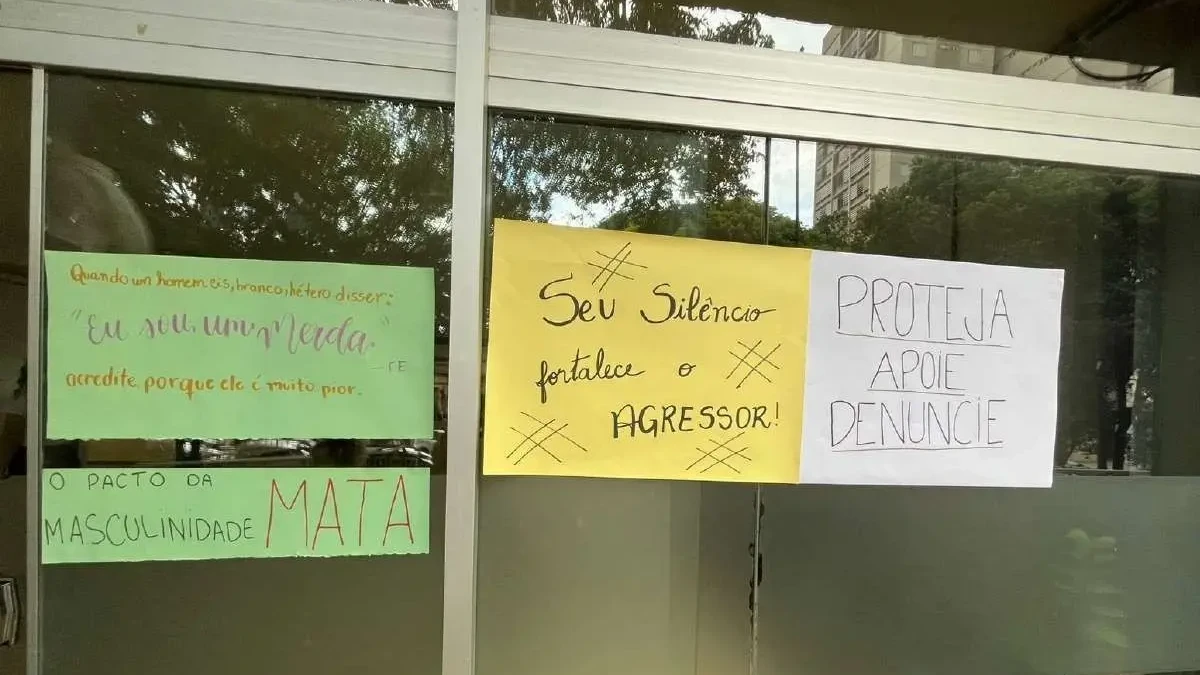 Quando um homem cis, branco, hétero disser:
"Eu sou um merda."
acredite porque ele é muito pior.
O PACTO DA
MASCULINIDADE MATA
SEU SilêNCiO
fortalece o
AGRESSOR!
PROTEJA
APOIE
DENUNCiE